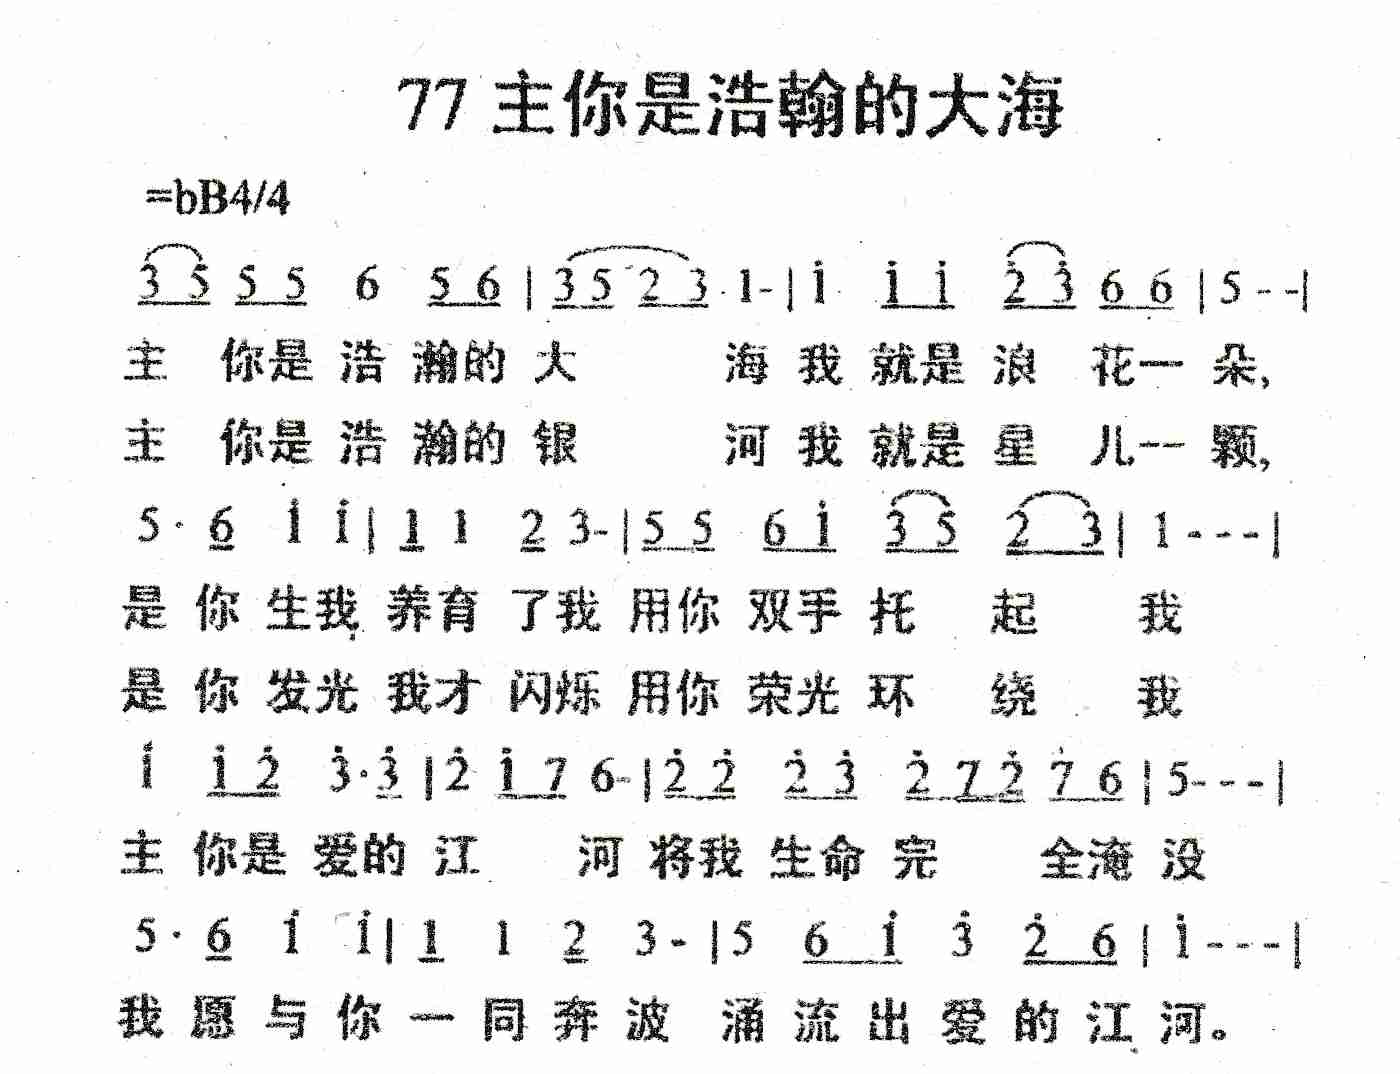 77 主你是浩瀚的大海
=bB4/4
3 5 5 5 6 5 6 | 3 5 2 3 1- | i i i 2̇ 3̇ 6 6 | 5 - - |
主 你是 浩 瀚的 大 海 我 就是 浪 花一 朵,
主 你是 浩 瀚的 银 河 我 就是 星 儿一 颗,
5 · 6 i i | 1 1 2 3- | 5 5 6 i 3 5 2 3 | 1 - - - |
是 你 生我 养育 了我 用你 双手 托 起 我
是 你 发光 我才 闪烁 用你 荣光 环 绕 我
i i 2̇ 3̇·3̇ | 2̇ i 7 6- | 2̇ 2̇ 2̇ 3̇ 2̇ 7 2̇ 7 6 | 5- - - |
主 你是 爱的 江 河 将我 生命 完 全淹 没
5 · 6 i i | 1 1 2 3 - | 5 6 i 3̇ 2̇ 6 | i - - - |
我 愿 与 你 一 同 奔 波 涌 流 出 爱 的 江 河。